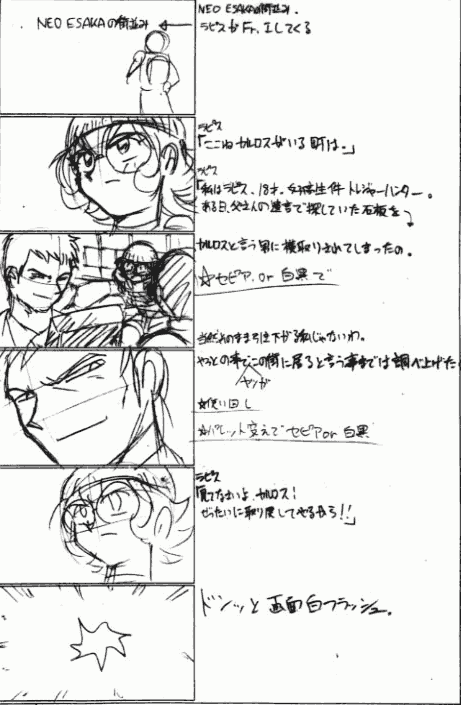 NEO ESAKAの街並み
NEO ESAKAの街並み.
ラピスがFr.Iしてくる
ラピス
「ここねカルロスがいる町は.」
ラピス
「私はラピス、18才.
トレジャーハンター。
ある日、父さんの遺言で探していた石板を
カルロスと言う男に横取りされてしまったの.
☆セピア.or 白黒で
このまま引き下がる私じゃないわ.
やっとの事でこの街に居ると言う事までは調べ上げた
ヤツが
☆使い回し
☆パレット変えでセピアor白黒
ラピス
「見てなさいよ、カルロス!
ぜったいに取り戻してやるから!!」
ドンッと画面白フラッシュ.